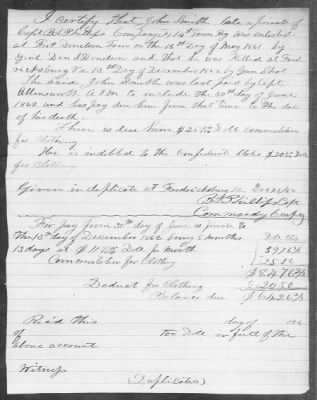 I certify that John Smith late a private of
Capt B L Phillips Company 14th Tenn Reg was enlisted
at Fort Donelson Tenn on the 18th Day of May 1861 by
Genl Dan'l Donelson and that he was Killed at Fred
ricksburg Va 13th of December 1862 by Gun Shot
The said John Smith was last paid by Capt
A.Q.M. to include the 30th day of June
1862 and has pay due him from that time to the date
of his death
There is due him $25 Doll commutation
for clothing
He is indebted to the Confederate States $20 50 Doll
for Clothing
Given in duplicate at Fredricksburg Va Dec 22/62
B L Phillips Capt
Commandg Compy
For pay from 30th day of June as private to
The 13th Day of December 1862 being 5 months D. Cts
13 days at $11 Doll pr Month 59 76 2/3
Commutation for Clothing 25 00
$84 76 2/3
Deduct for Clothing $20 50
Balance due $64 26 2/3
Recd this day of 186
of Doll in full of the
above account
Witness
(Duplicates)